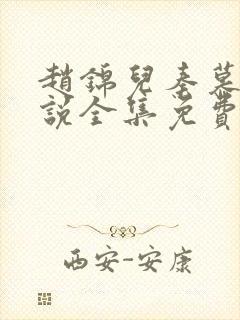 趙錦兒秦慕
說全集免費
西安-安康